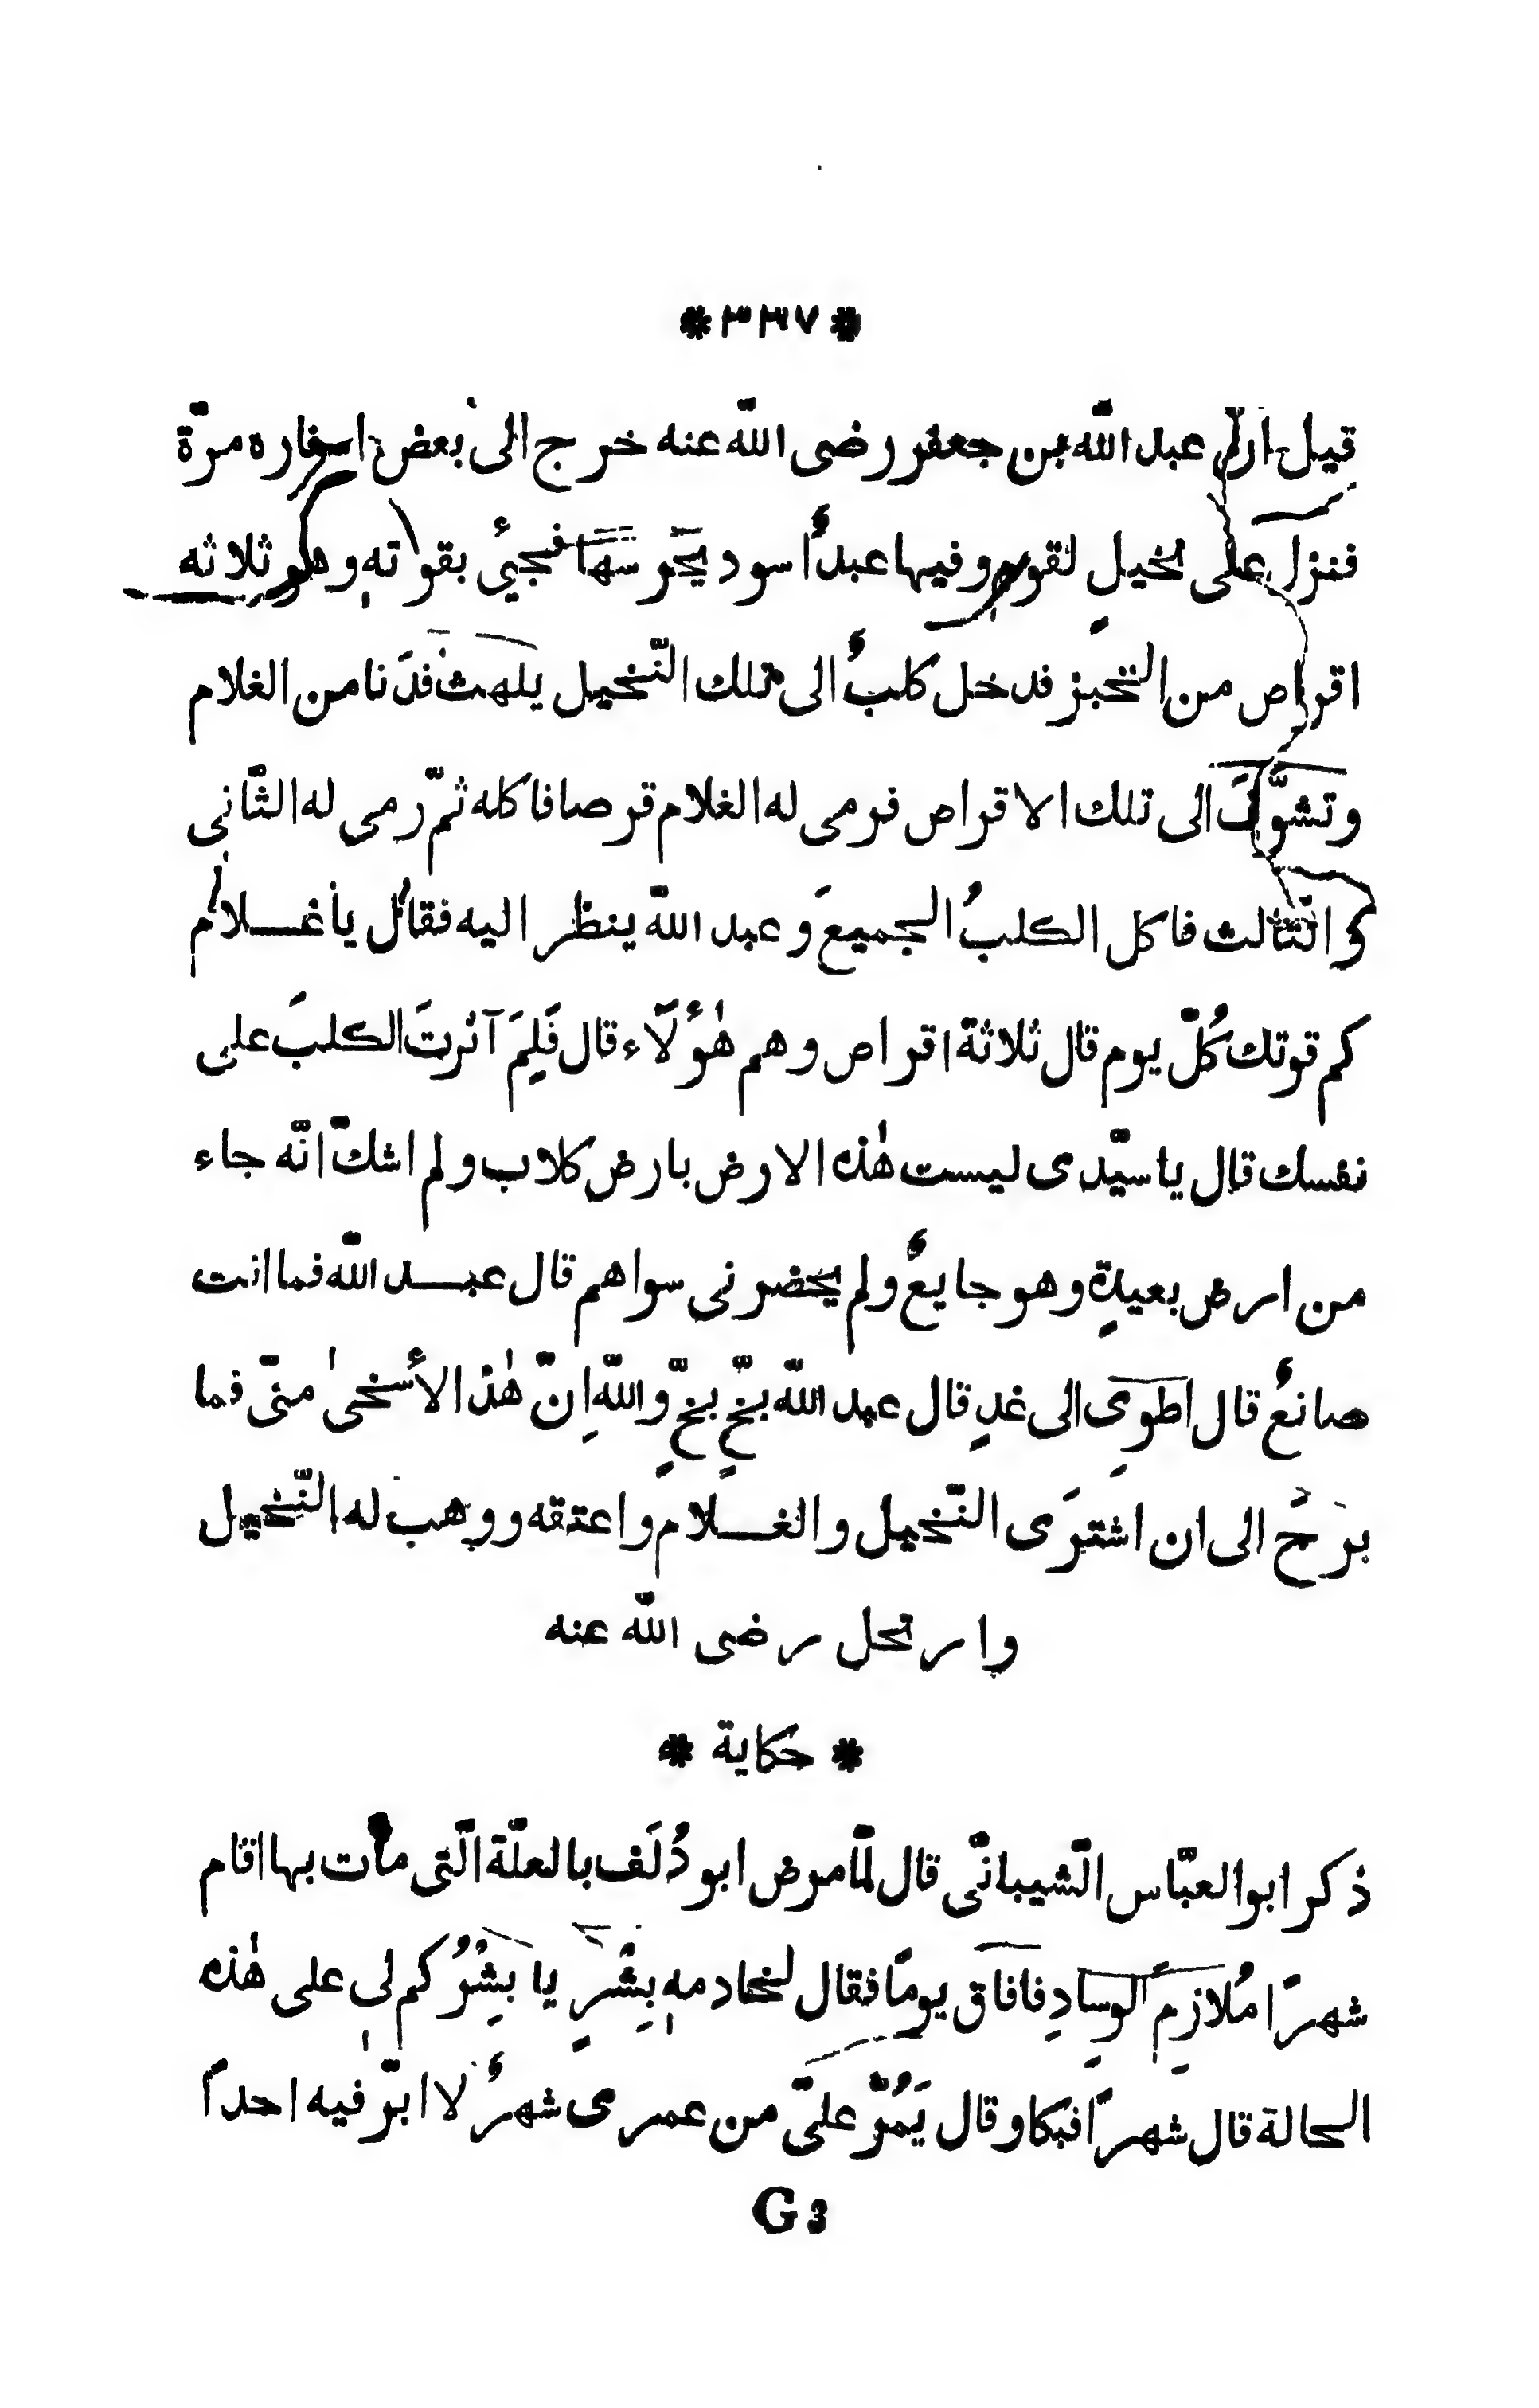 * ٣٣٧ *
قيل ان عبد اللّه بن جعفر رضى اللّه عنه خرج الى بعض اسفاره مرّة
فنزل على نخيلٍ لقوم وفيها عبدٌ اسود يحرسها فجئ بقوته وهو ثلاثه
اقراص من الخبز فدخل كلبٌ الى تلك النّخيل يلهث فدَنا من الغلام
وتشوَّفَ الى تلك الاقراص فرمى له الغلام قرصا فاكله ثمّ رمى له الثّانى
والثّالث فاكل الكلبُ الجميعَ وعبد اللّه ينظر اليه فقال يا غلام
كم قوتك كُلّ يوم قال ثلاثة اقراص وهم هٰؤُلَآء قال فَلِمَ آثرتَ الكلبَ على
نفسك قال يا سيّدى ليست هٰذه الارض بارض كلاب ولم اشكّ انّه جاء
من ارض بعيدةٍ وهو جايعٌ ولم يحضرنى سواهم قال عبد اللّه فما انت
صانعٌ قال اطوِى الى غدٍ قال عبد اللّه بخٍّ بخٍّ واللّهِ اِنّ هٰذا لأسخىٰ منّى فما
بَرَحَ الى ان اشترَى النّخيل والغلام واعتقه ووهب له النّخيل
وارتحل رضى اللّه عنه
* حكاية *
ذكر ابو العبّاس الشّيبانّى قال لمّا مرض ابو دُلَف بالعلّة الّتى مات بها اقام
شهرًا مُلازِمَ الوِسادِ فافاق يومًا فقال لخادمه بِشْرٍ يا بِشْرُ كم لى على هٰذه
الحالة قال شهرًا فبكا وقال يَمُرُّ علىّ من عمرى شهرٌ لا ابرّ فيه احدًا
G 3